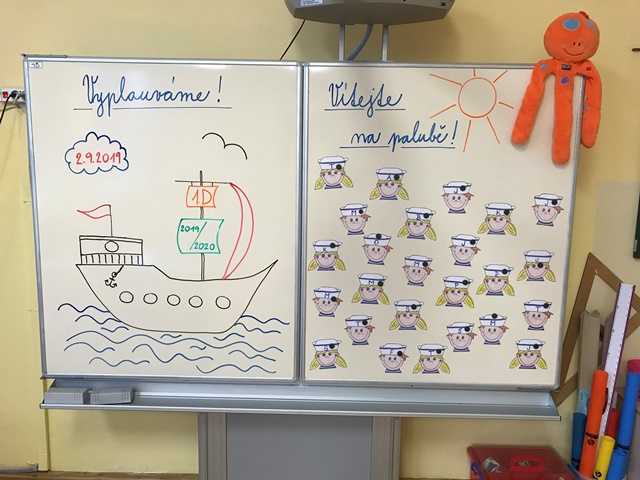 Vyplouváme!
2.9.2019
1.D
2019/
2020
Vítejte
na palubě!